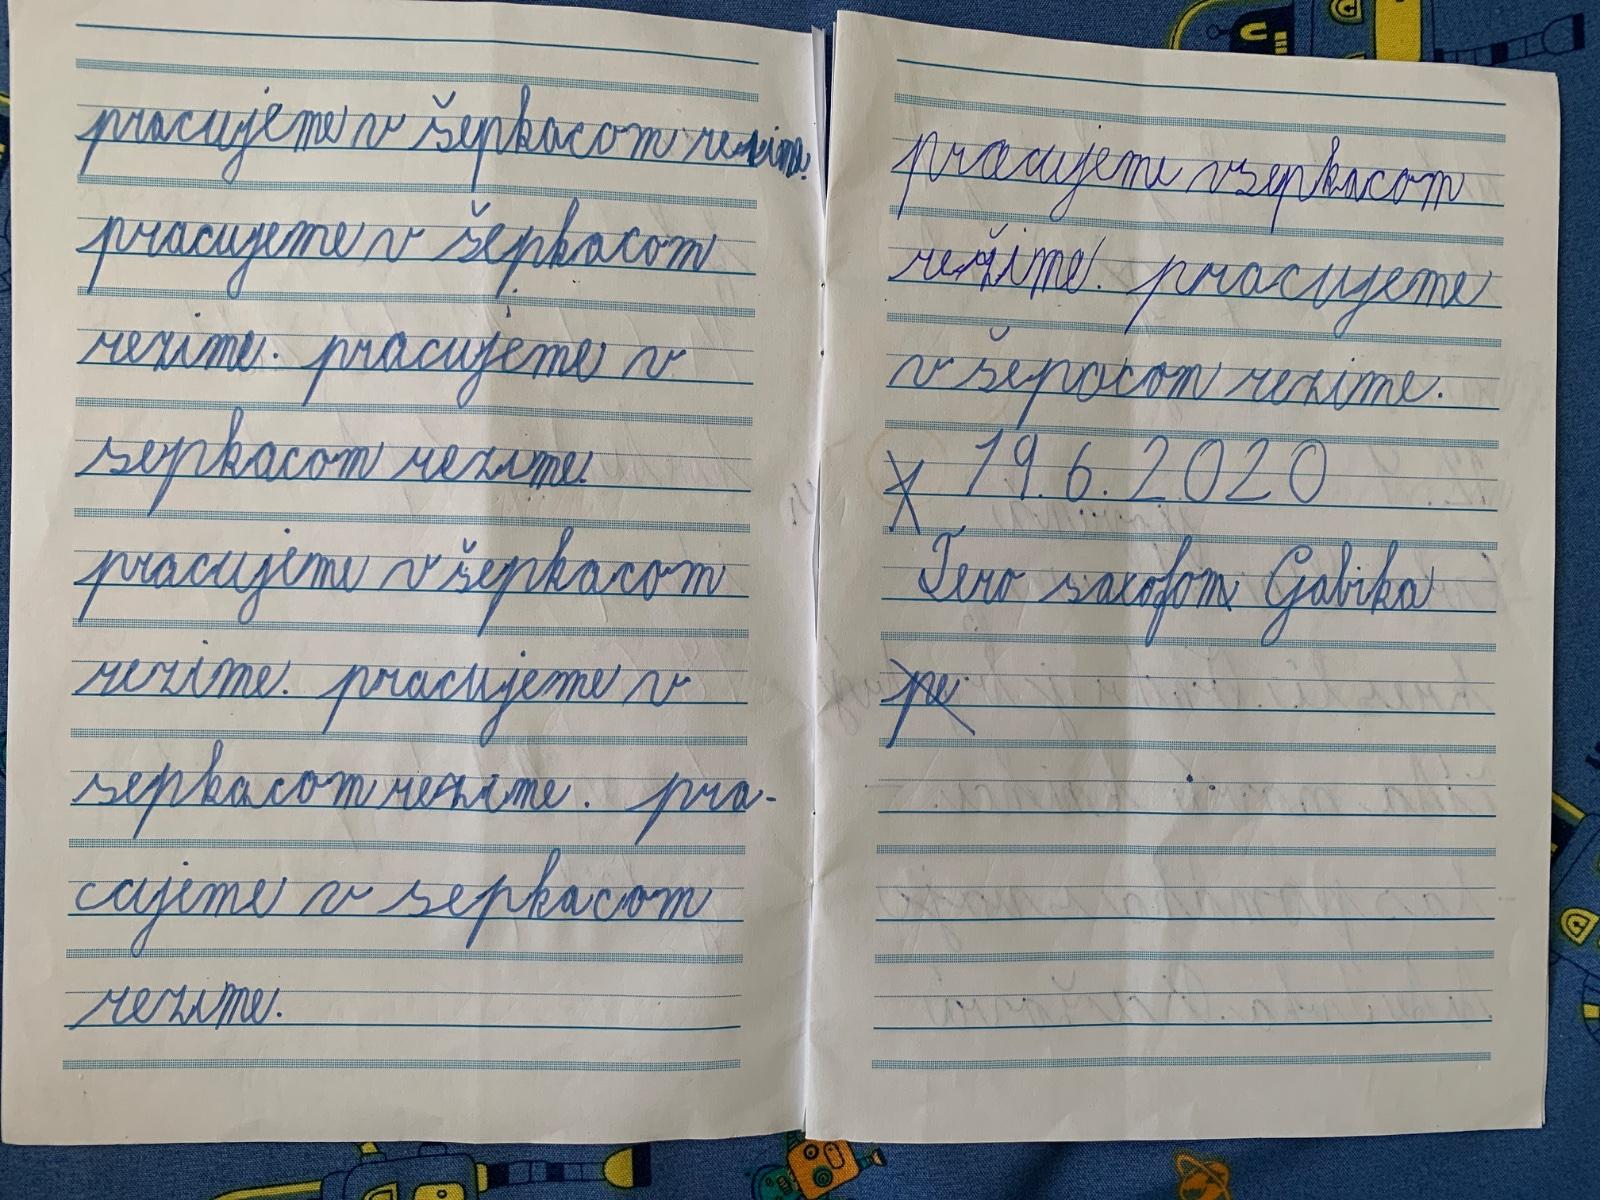 pracujeme v šepkacom rezime.
pracujeme v šepkacom
rezime. pracujeme v
sepkacom rezime.
pracujeme v šepkacom
rezime. pracujeme v
sepkacom rezime. pra-
cujeme v sepkacom
rezime.
pracujeme vsepkacom
režime. pracujeme
v šepacom rezime.
19.6.2020
Tero saxofom Gabika